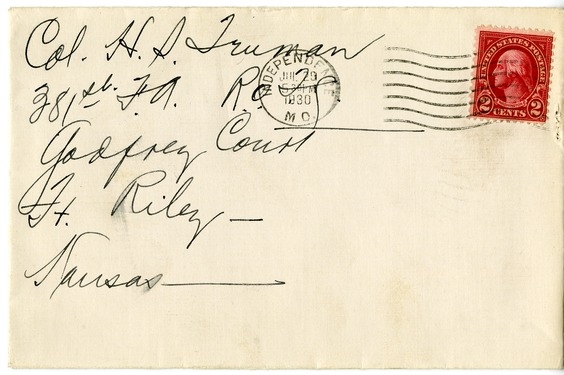 Col. H. S. Truman
381st. F.A. Res.
Godfrey Court
Ft. Riley —
Kansas —
INDEPENDENCE
1930
MO.
UNITED STATES POSTAGE
2 CENTS 2